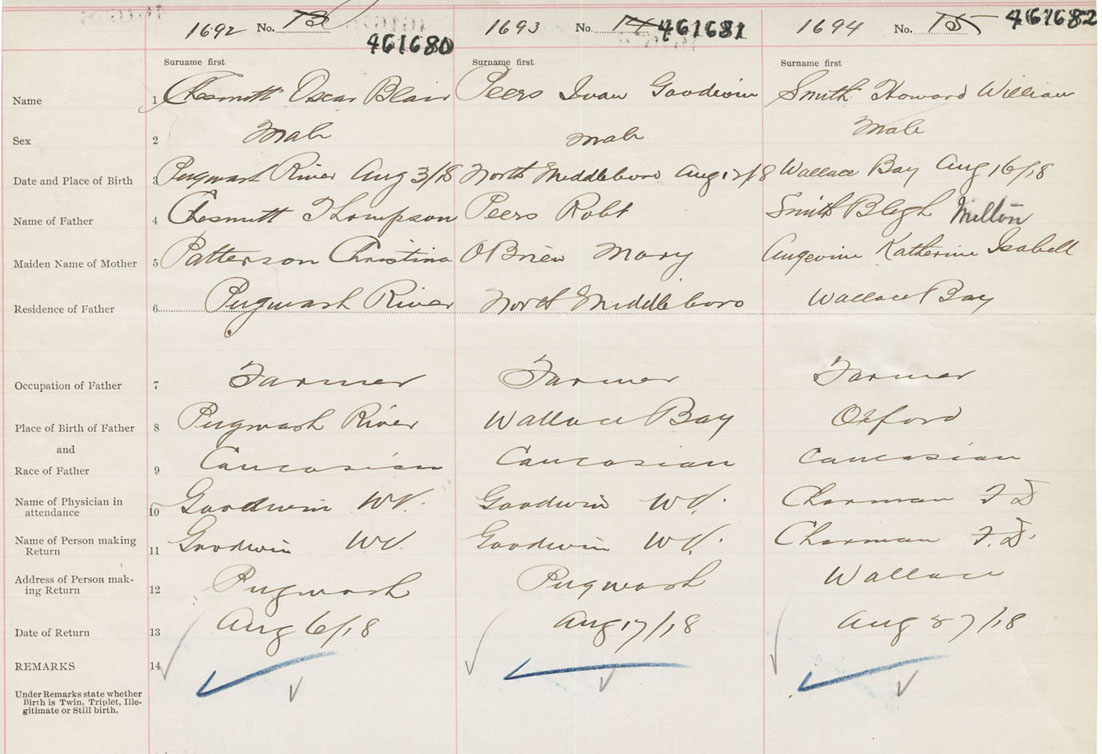 1692 No. 13 461680 1693 No. 14 461681 1694 No. 15 461682
Surname first Surname first Surname first
Name 1 Chesmutt Oscar Blair Peers Ivan Goodwin Smith Howard William
Sex 2 Male Male Male
Date and Place of Birth 3 Pugwash River Aug 3/18 North Middleboro Aug 17/18 Wallace Bay Aug 16/18
Name of Father 4 Chesmutt Thompson Peers Robt Smith Blegh Milton
Maiden Name of Mother 5 Patterson Christina O'Brien Mary Angevine Katherine Isabell
Residence of Father 6 Pugwash River North Middleboro Wallace Bay
Occupation of Father 7 Farmer Farmer Farmer
Place of Birth of Father 8 Pugwash River Wallace Bay Oxford
and
Race of Father 9 Caucasian Caucasian Caucasian
Name of Physician in
attendance 10 Goodwin WV. Goodwin WV. Charman F D
Name of Person making
Return 11 Goodwin WV. Goodwin WV. Charman F. D.
Address of Person mak-
ing Return 12 Pugwash Pugwash Wallace
Date of Return 13 Aug 6/18 Aug 17/18 Aug 27/18
REMARKS 14
Under Remarks state whether
Birth is Twin, Triplet, Ille-
gitimate or Still birth.